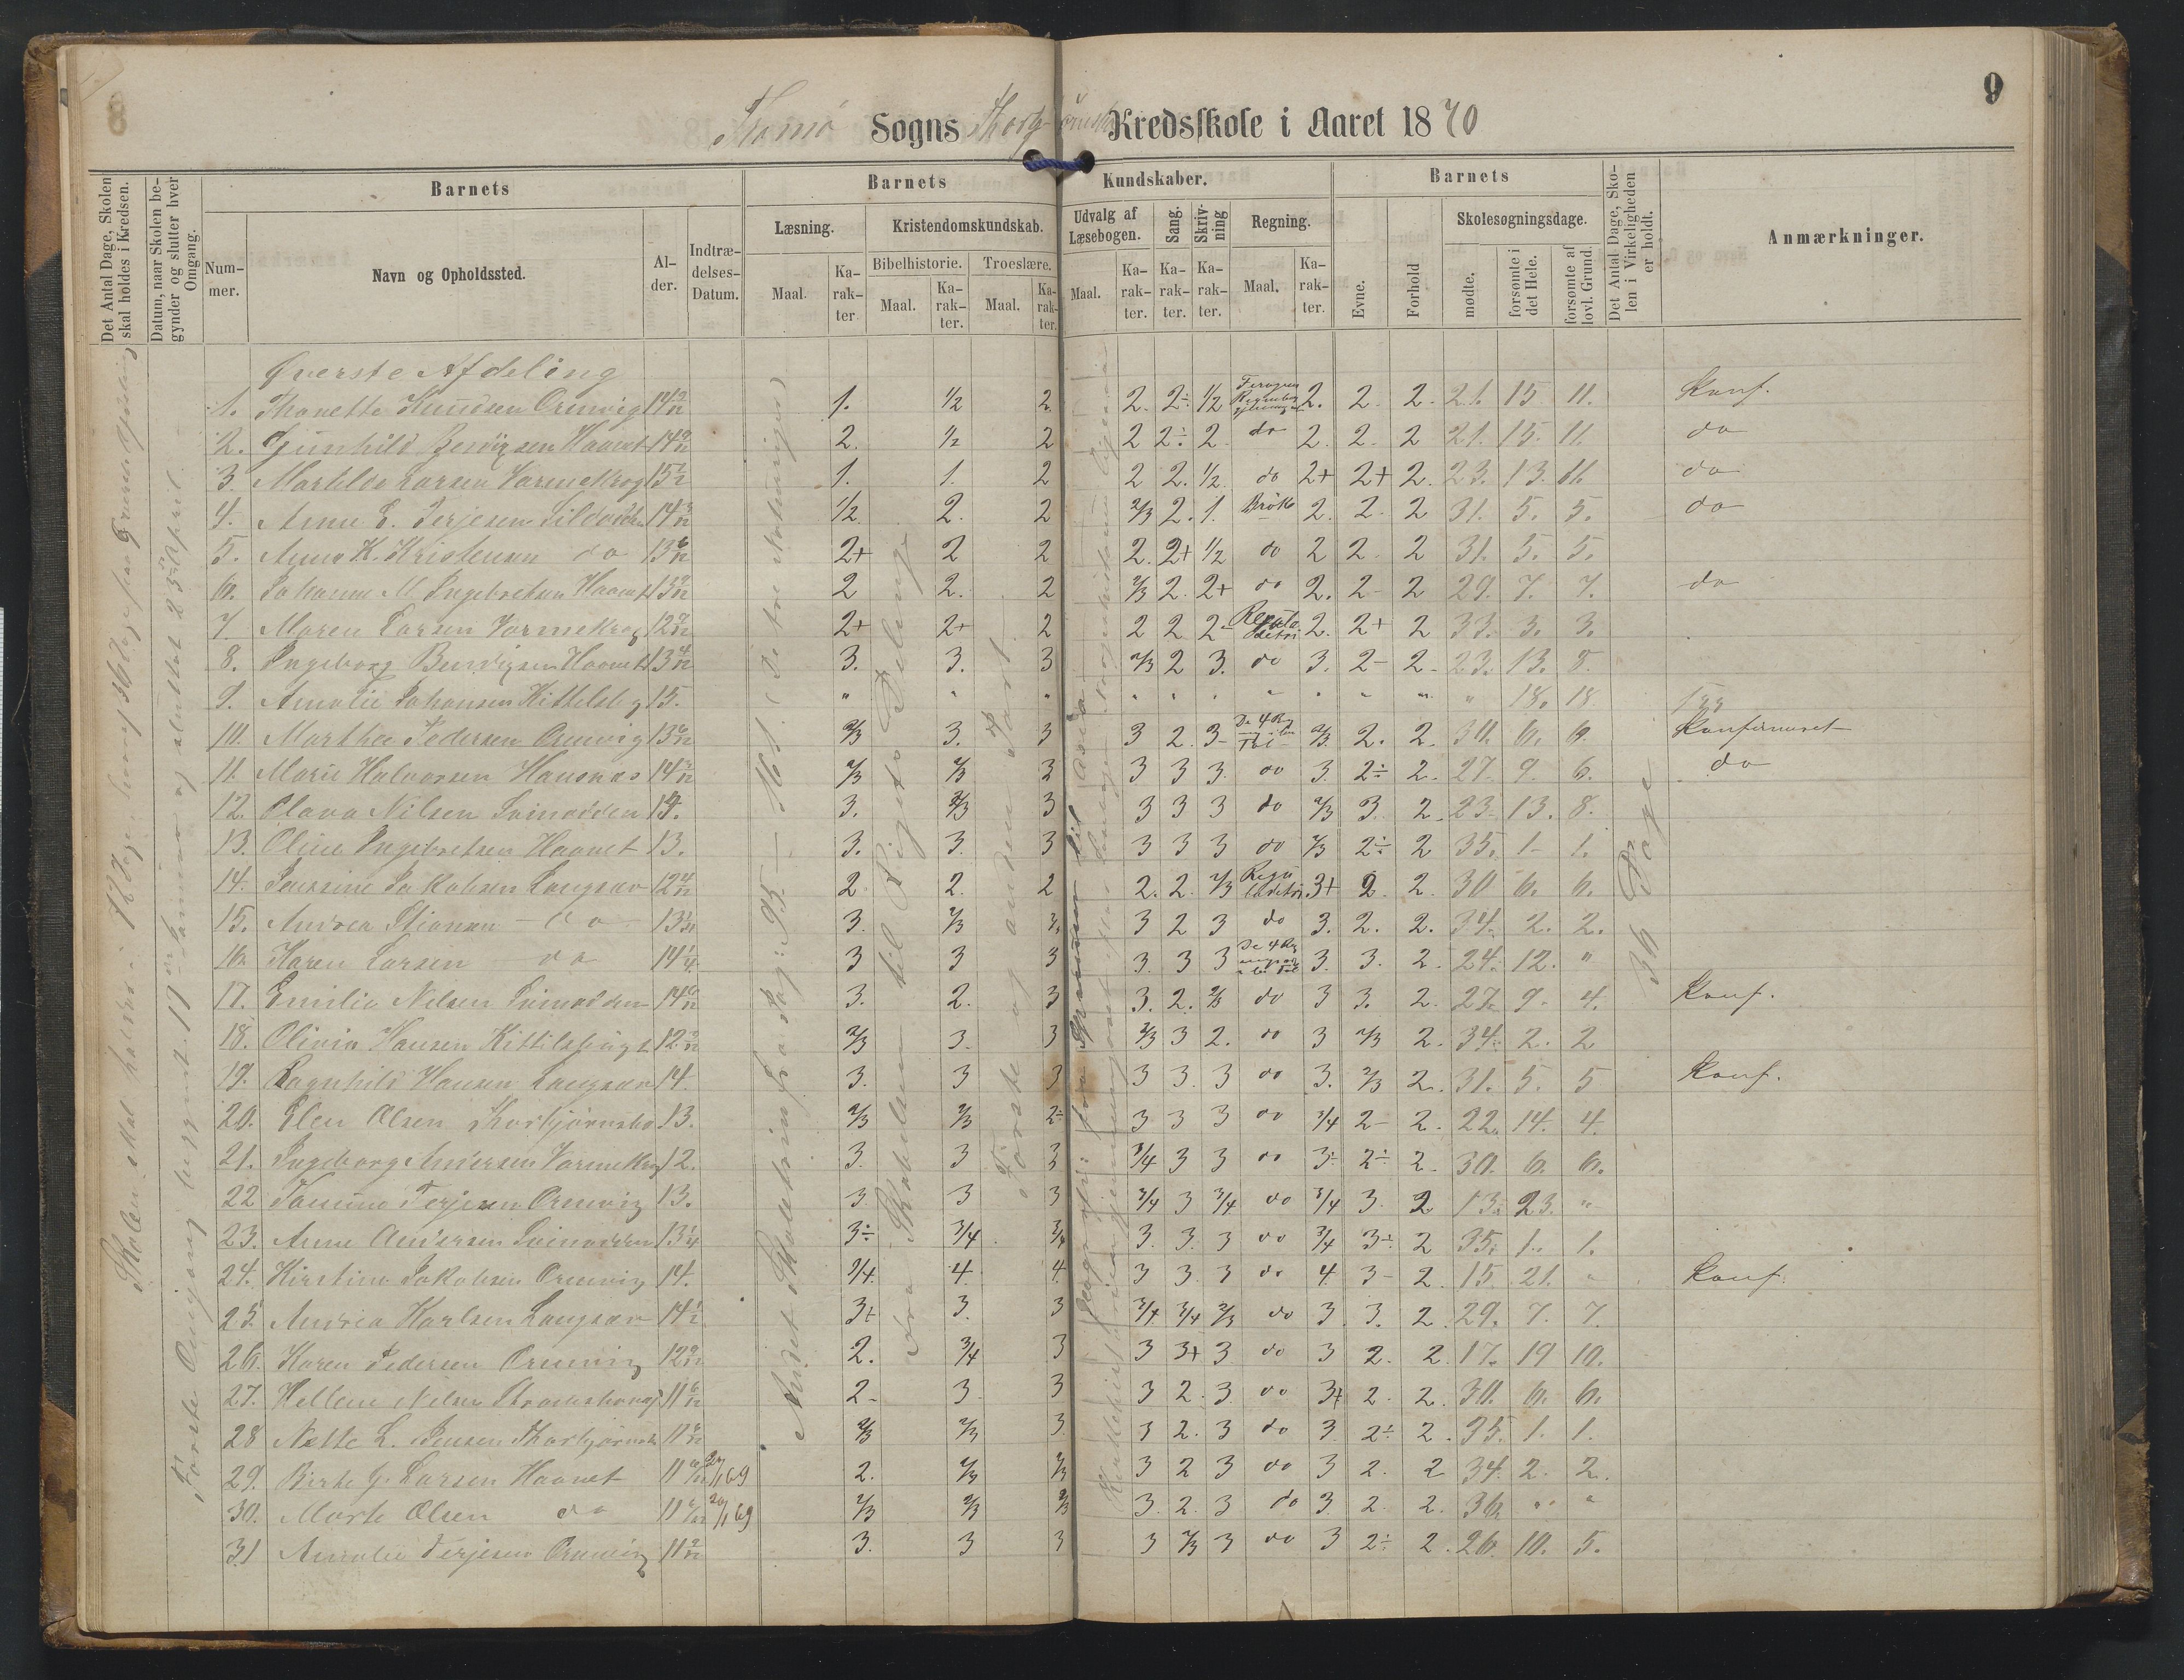 8
9
Tromø Sogns Thorbjørnsbo Kredsskole i Aaret 1870
Det Antal Dage, Skolen skal holdes i Kredsen.
Datum, naar Skolen begynder og slutter hver Omgang.
Barnets
Nummer.
Navn og Opholdssted.
Alder.
Indtrædelses-Datum.
Barnets Kundskaber.
Læsning.
Maal.
Karakter
Kristendomskundskab.
Bibelhistorie.
Maal.
Karakter.
Troeslære.
Maal.
Karakter.
Udvalg af Læsebogen.
Maal.
Karakter.
Sang.
Karakter.
Skrivning
Karakter.
Regning.
Maal.
Karakter.
Barnets
Evne.
Forhold
Skolesøgningsdage.
mødte.
forsømte i det Hele.
forsømte af lovl. Grund.
Det Antal Dage, Skolen i Virkeligheden er holdt.
Anmærkninger.
Øverste Afdeling
1. Thonette Knudsen Ormvig 14 1. ½ 2 2. 2÷ ½ 2. 2 2. 21. 15 11. Konf.
2. Gunhild Bendigsen Haavet 14 2. ½ 2 2 2÷ 2 do 2. 2 2 21. 15. 11. do
3. Mathilde Larsen Varmekrog 15 1. 1. 2 2 2. ½ do 2+ 2+ 2. 23. 13. 11. do
4. Anne E. Terjesen Sildodden 14 ½ 2. 2 2/3 2. 1. Brøk 2. 2. 2 31. 5. 5. do
5. Anna K. Kristensen do 13 2+ 2 2 2. 2+ ½ do 2 2 2 31. 5. 5.
6. Johanne M. Ingebretsen Haavet 13 2 2. 2 2/3 2. 2+ do 2. 2 2 29. 7. 7. do
7. Maren Larsen Varmekrog 12 2+ 2+ 2 2 2 2 Reguladetri 2. 2+ 2 33. 3. 3.
8. Ingeborg Bendigsen Haavet 13 3. 3. 3 2/3 2 3. do 3. 2- 2 23. 13. 8.
9. Amalie Johansen Kittelsb 15. " " " " " " " " " " " 18. 18
10. Marthe Pedersen Ormvig 13 2/3 3. 3 3 2. 3 De 4 Reg Tal 2/3 2. 2. 30. 6. 6. Konfirmeret
11. Marie Halvorsen Hausnæs 14 2/3 2/3 3 3 3 3. do 3. 2÷ 2. 27. 9. 6. do
12. Olava Nilsen Svinodden 14. 3. 2/3 3 3 3 3 do 2/3 3. 2. 23. 13. 8.
13. Oline Ingebretsen Haavet 13. 3. 3. 3 3 3 3 do 2/3 2÷ 2 35. 1. 1.
14. Jenssine Jakobsen Langsæv 12 2. 2. 2 2. 2. 2/3 Reguladetri 3+ 2 2. 30 6. 6.
15. Andrea Stianssen do 13 3. 2/3 3 2 3 do 3. 2. 2. 34. 2. 2.
16. Karen Larsen do 14 3 3 3 3. 3 3 De 4 Reg 3. 3. 2. 24. 12. "
17. Emilie Nilsen Svinodden 14 3. 2. 3 3. 2. 2/3 do 3 3. 2. 27. 9. 4. Konf.
18. Olivia Hansen Kittilsbugt 12 2/3 3. 3 2/3 3 2. do 3 2/3 2. 34. 2. 2
19. Ragnhild Hansen Langsæv 14. 3. 3 3 3 3. 3 do 3. 2/3 2. 31. 5. 5 Konf.
20. Elen Olsen Thorbjørnsbo 13. 2/3 2/3 2÷ 3 3 3 do 3/4 2- 2. 22. 14. 4.
21. Ingeborg Andersen Varmekrog 12. 3. 3 3 3/4 3 3 do 3÷ 2÷ 2. 30. 6. 6.
22 Terjesen Ormvig 13. 3. 3 3 3/4 3 3/4 do 3/4 3. 2 13. 23. "
23. Anne Andersen Svinodden 13 3÷ 3/4 3/4 3. 3. 3 do 3/4 3÷ 2 35. 1. 1.
24. Kirstine Jakobsen Ormvig 14. 3/4. 4. 4. 3 3. 3 do 4. 3- 2. 15 21. " Konf.
25. Andrea Karlsen Langsæv 14 3+ 3. 3 3/4 3/4 2/3 do 3. 3. 2. 29. 7. 7.
26. Karen Pedersen Ormvig 12 2. 3/4 3 3 3+ 3 do 3 2. 2. 17. 19 10.
27. Hellene Nilsen 11 2- 3. 3 3 2. 3. do 3+ 2. 2. 30. 6. 6.
28 Nette L. Jensen Thorbjørnsb 11 2/3 2/3 3. 3 2. 3 do 3 2÷ 2. 35. 1. 1.
29. Birte G. Larsen Haavet 11 69 2. 2/3 2/3 3 2 3 do 3 2. 2 34. 2. 2.
30. Marte Olsen do 11 69 2/3 2/3 2/3 3. 2. 3 do 3. 2. 2. 36 " "
31 Amalie Terjesen Ormvig 11 3. 3 3 3 2/3 3 do 3 2÷ 2. 26. 10. 5.
Skolen skal holdes i 72 Dage
Første Omgang begyndt
April
Andet Skoletrin fra Pag: 95 — 161.
fra Skabelsen til Rigets Deling
Første og anden Part
36 Dage